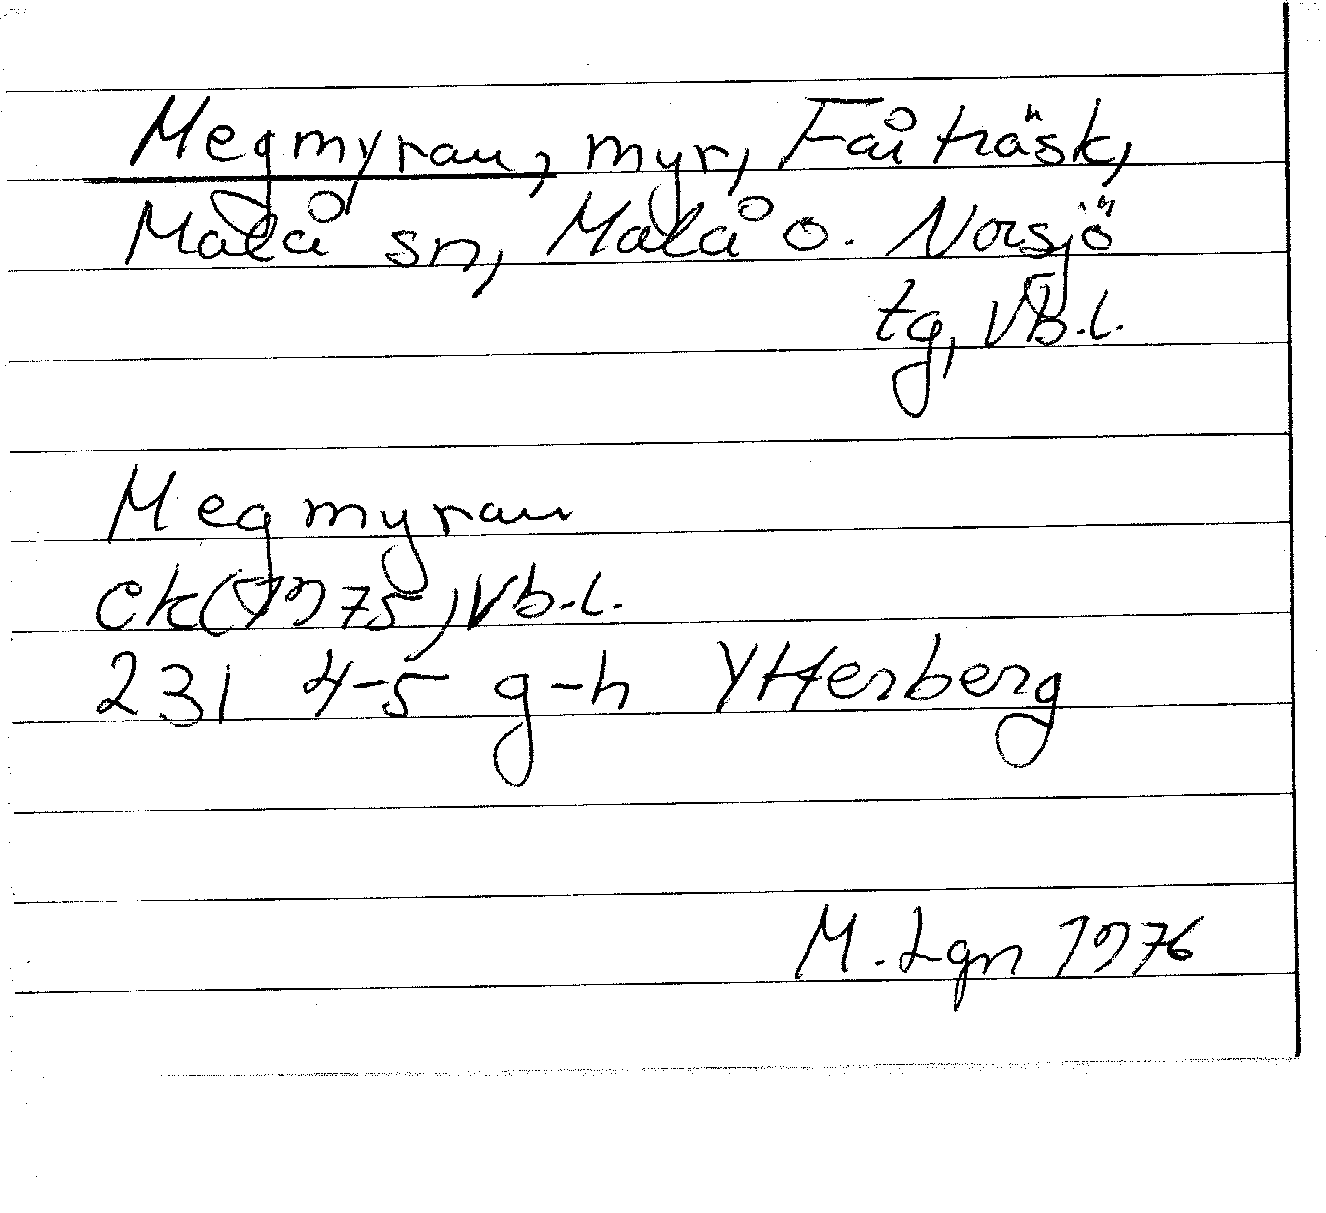 Megmyran, myr, Fåiträsk,
Malå sn, Malå o. Norsjö
tg, Vb.l.
Megmyran
ek(1975) Vb.l.
231 4-5 g-h Ytterberg
M. Lgn 1976